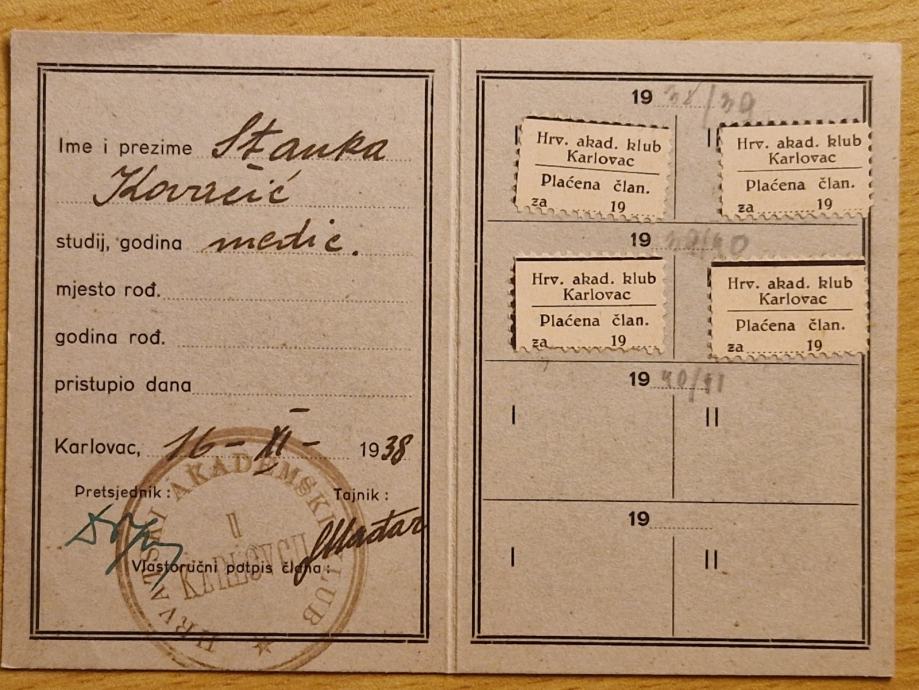 Ime i prezime Stanka
Kovačić
studij, godina medic.
mjesto rođ.
godina rođ.
pristupio dana
Karlovac, 16 - XI - 1938
Pretsjednik: Tajnik:
Mađar
Vlastoručni potpis člana:
HRVATSKI AKADEMSKI KLUB
U
KARLOVCU
19 38/39
I II
Hrv. akad. klub
Karlovac
Plaćena član.
za 19
Hrv. akad. klub
Karlovac
Plaćena član.
za 19
19 39/40
Hrv. akad. klub
Karlovac
Plaćena član.
za 19
Hrv. akad. klub
Karlovac
Plaćena član.
za 19
19 40/41
I II
19
I II